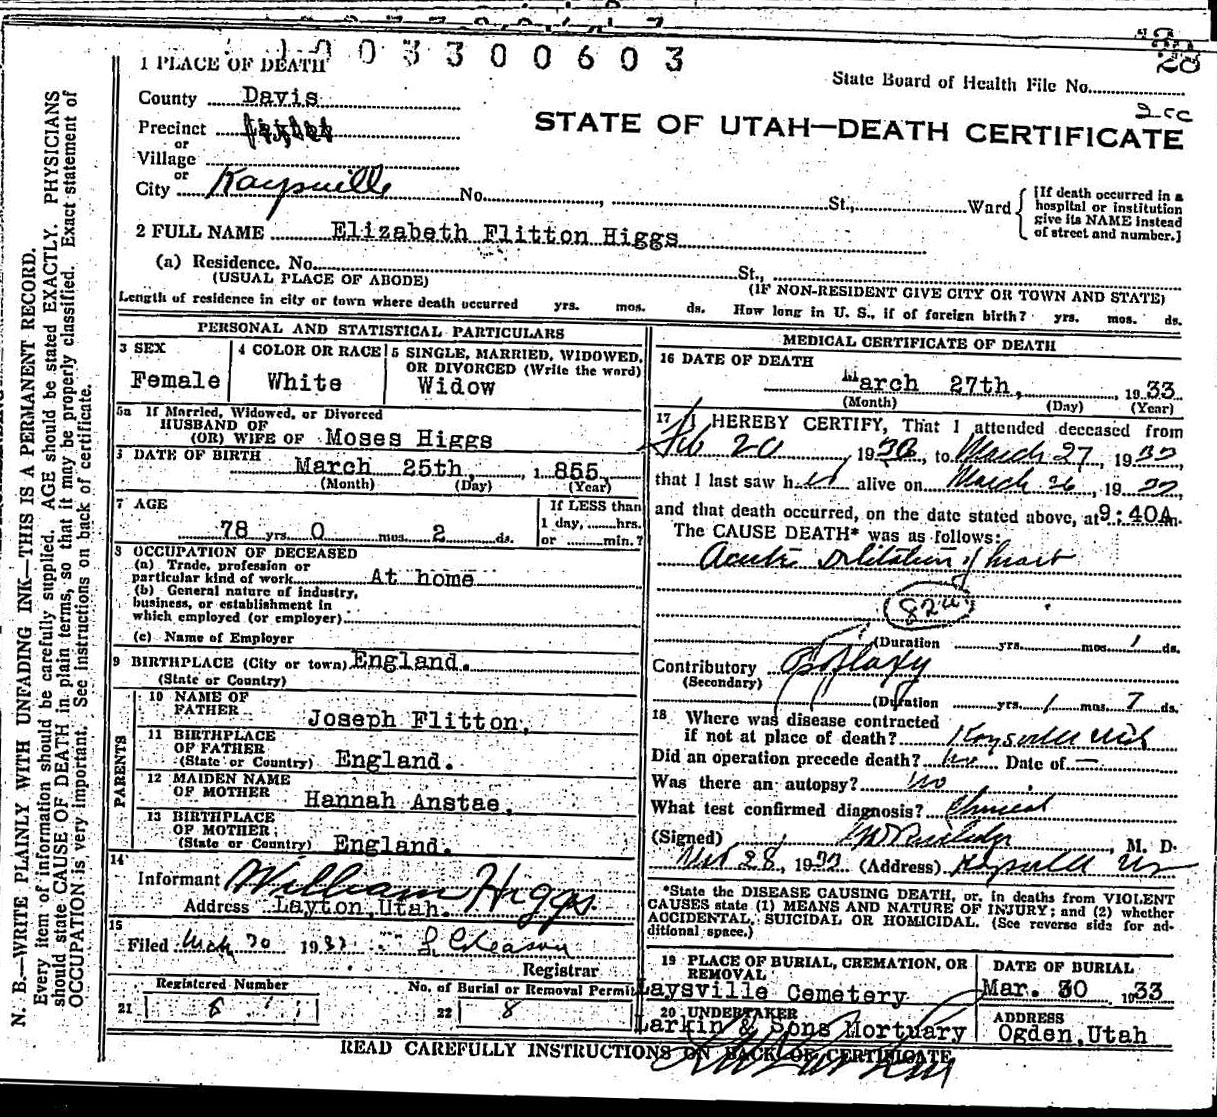 1003300603
28
1 PLACE OF DEATH
State Board of Health File No.
2 cc
County Davis
STATE OF UTAH—DEATH CERTIFICATE
Precinct
or
Village
or
City Kaysville No. , St., Ward
[If death occurred in a hospital or institution give its NAME instead of street and number.]
2 FULL NAME Elizabeth Flitton Higgs
(a) Residence. No. St.,
(USUAL PLACE OF ABODE) (IF NON-RESIDENT GIVE CITY OR TOWN AND STATE)
Length of residence in city or town where death occurred yrs. mos. ds. How long in U. S., if of foreign birth? yrs. mos. ds.
PERSONAL AND STATISTICAL PARTICULARS
3 SEX
Female
4 COLOR OR RACE
White
5 SINGLE, MARRIED, WIDOWED,
OR DIVORCED (Write the word)
Widow
5a If Married, Widowed, or Divorced
HUSBAND OF
(OR) WIFE OF Moses Higgs
DATE OF BIRTH
March 25th, 1855
(Month) (Day) (Year)
7 AGE
78 yrs. 0 mos. 2 ds.
If LESS than
1 day, hrs.
or min.?
8 OCCUPATION OF DECEASED
(a) Trade, profession or
particular kind of work At home
(b) General nature of industry,
business, or establishment in
which employed (or employer)
(c) Name of Employer
9 BIRTHPLACE (City or town) England.
(State or Country)
PARENTS
10 NAME OF
FATHER Joseph Flitton,
11 BIRTHPLACE
OF FATHER
(State or Country) England.
12 MAIDEN NAME
OF MOTHER Hannah Anstae,
13 BIRTHPLACE
OF MOTHER
(State or Country) England.
14
Informant William Higgs
Address Layton, Utah.
15
Filed Mch 30 1933
Registrar
Registered Number
21 6
No. of Burial or Removal Permit
22 8
MEDICAL CERTIFICATE OF DEATH
16 DATE OF DEATH
March 27th, 1933
(Month) (Day) (Year)
17 I HEREBY CERTIFY, That I attended deceased from
Feb 20, 1933, to March 27, 1933,
that I last saw her alive on March 26, 1933,
and that death occurred, on the date stated above, at 9:40A m.
The CAUSE DEATH* was as follows:
Acute Dilitation of heart
82a
(Duration yrs. mos. 1 ds.
Contributory
(Secondary)
(Duration yrs. 1 mos. 7 ds.
18 Where was disease contracted
if not at place of death? Kaysville Utah
Did an operation precede death? no Date of —
Was there an autopsy? no
What test confirmed diagnosis? Clinical
(Signed) , M. D.
Mch 28, 1933 (Address) Kaysville Ut
*State the DISEASE CAUSING DEATH, or, in deaths from VIOLENT
CAUSES state (1) MEANS AND NATURE OF INJURY; and (2) whether
ACCIDENTAL, SUICIDAL OR HOMICIDAL. (See reverse side for ad-
ditional space.)
19 PLACE OF BURIAL, CREMATION, OR
REMOVAL
Laysville Cemetery
DATE OF BURIAL
Mar. 30 1933
20 UNDERTAKER
Larkin & Sons Mortuary
ADDRESS
Ogden, Utah
READ CAREFULLY INSTRUCTIONS ON BACK OF CERTIFICATE
N. B.—WRITE PLAINLY WITH UNFADING INK—THIS IS A PERMANENT RECORD.
Every item of information should be carefully supplied. AGE should be stated EXACTLY. PHYSICIANS
should state CAUSE OF DEATH in plain terms, so that it may be properly classified. Exact statement of
OCCUPATION is very important. See instructions on back of certificate.